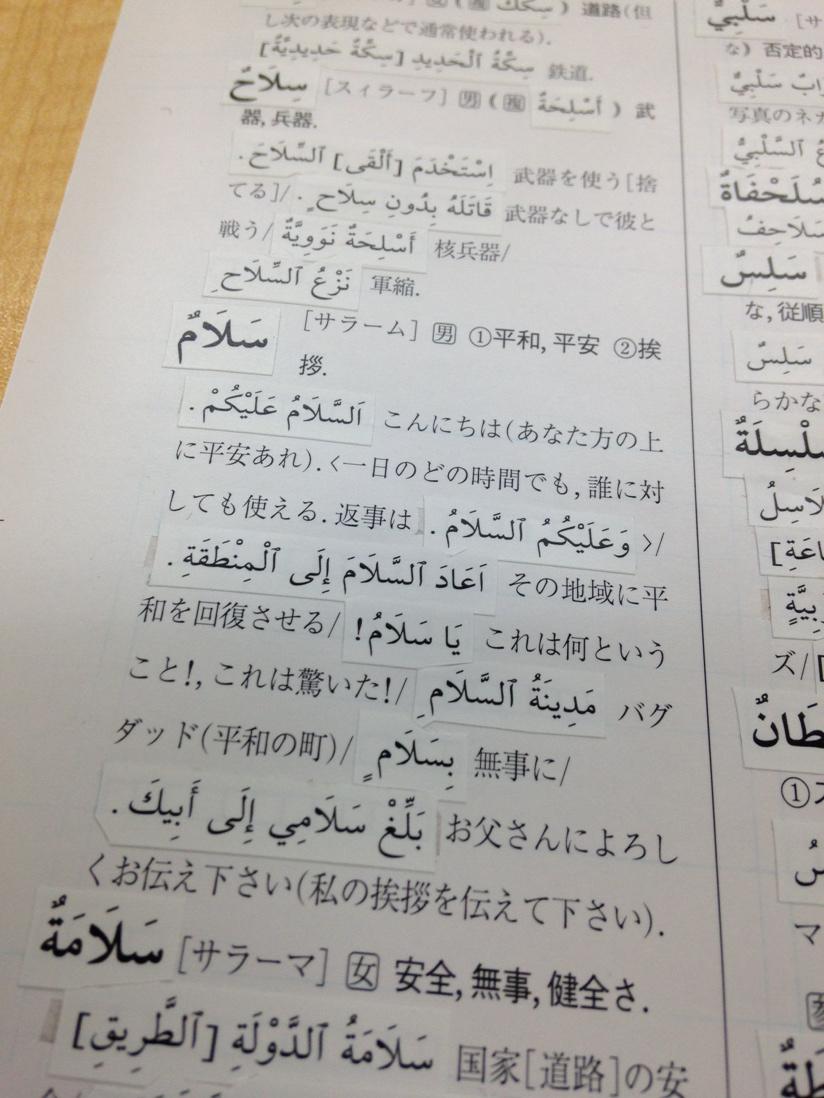 سِكَكٌ ) 道路(但
し次の表現などで通常使われる).
سِكَّةُ ٱلْحَدِيدِ [سِكَّةٌ حَدِيدِيَّةٌ] 鉄道.
سِلَاحٌ [スィラーフ] 男 ( 複 أَسْلِحَةٌ ) 武
器, 兵器.
اِسْتَخْدَمَ [أَلْقَى] ٱلسِّلَاحَ. 武器を使う[捨
てる]/ قَاتَلَهُ بِدُونِ سِلَاحٍ. 武器なしで彼と
戦う/ أَسْلِحَةٌ نَوَوِيَّةٌ 核兵器/
نَزْعُ ٱلسِّلَاحِ 軍縮.
سَلَامٌ [サラーム] 男 ①平和, 平安 ②挨
拶.
اَلسَّلَامُ عَلَيْكُمْ. こんにちは(あなた方の上
に平安あれ). <一日のどの時間でも, 誰に対
しても使える. 返事は وَعَلَيْكُمُ ٱلسَّلَامُ. >/
اَعَادَ ٱلسَّلَامَ إِلَى ٱلْمِنْطَقَةِ. その地域に平
和を回復させる/ يَا سَلَامُ! これは何という
こと!, これは驚いた!/ مَدِينَةُ ٱلسَّلَامِ バグ
ダッド(平和の町)/ بِسَلَامٍ 無事に/
بَلِّغْ سَلَامِي إِلَى أَبِيكَ. お父さんによろし
くお伝え下さい(私の挨拶を伝えて下さい).
سَلَامَةٌ [サラーマ] 女 安全, 無事, 健全さ.
سَلَامَةُ ٱلدَّوْلَةِ [ٱلطَّرِيقِ] 国家[道路]の安
سَلْبِيٌّ [サ
な) 否定的
سَلْبِيٌّ
写真のネガ
ٱلسَّلْبِيُّ
سُلَحْفَاةٌ
سَلَاحِفُ
سَلِسٌ
な, 従順
سَلِسٌ
らかな
سِلْسِلَةٌ
ズ/[
①ス
マ